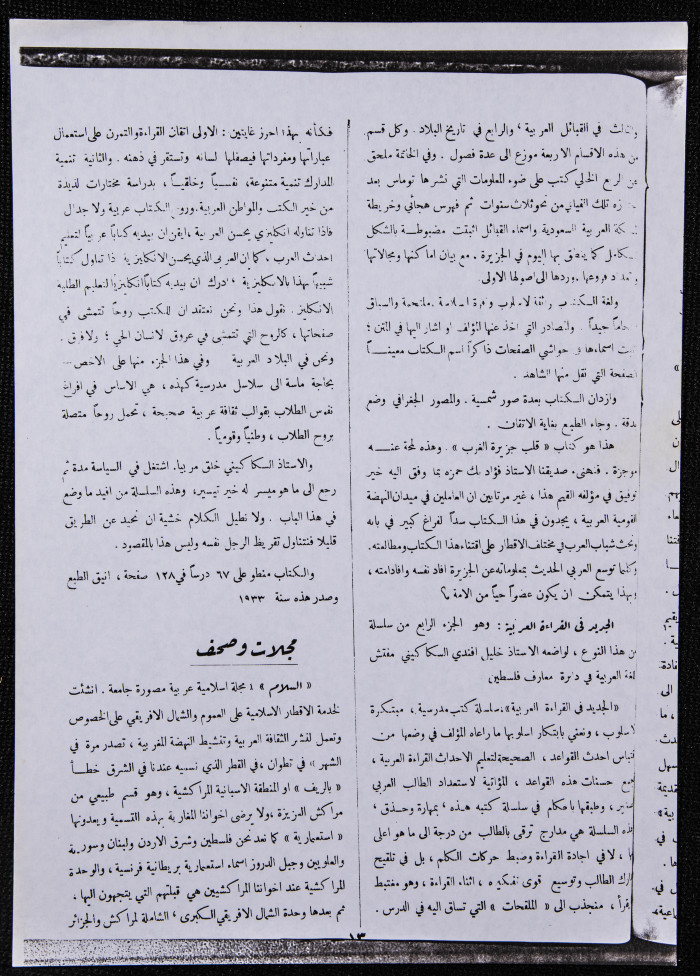 والثالث في القبائل العربية ، والرابع في تاريخ البلاد . وكل قسم
من هذه الاقسام الاربعة موزع الى عدة فصول . وفي الخاتمة ملحق
عن الربع الخالي كتب على ضوء المعلومات التي نشرها توماس بعد
تلك الفيافي من نحو ثلاث سنوات ثم فهرس هجائي وخريطة
العربية السعودية واسماء القبائل اثبتت مضبوطة بالشكل
الكامل كما ينطق بها اليوم في الجزيرة . مع بيان اماكنها ومجالاتها
وتعداد فروعها وردها الى اصولها الاولى .
ولغة الكتاب رائقة الاسلوب ملتحمة والسياق
جيداً . والمصادر التي اخذ عنها المؤلف او اشار اليها في المتن ؛
اثبت اسماءها في حواشي الصفحات ذاكراً اسم الكتاب معيناً
الصفحة التي نقل منها الشاهد .
وازدان الكتاب بعدة صور شمسية . والمصور الجغرافي وضع
بدقة . وجاء الطبع بغاية الاتقان .
هذا هو كتاب « قلب جزيرة العرب » . وهذه لمحة عنه
موجزة . فنهنىء صديقنا الاستاذ فؤاد بك حمزه بما وفق اليه خير
توفيق في مؤلفه القيم هذا ، غير مرتابين ان العاملين في ميدان النهضة
القومية العربية ، يجدون في هذا الكتاب سداً لفراغ كبير في بابه
ونحث شباب العرب في مختلف الاقطار على اقتناء هذا الكتاب ومطالعته .
وكلما توسع العربي الحديث بمعلوماته عن الجزيرة افاد نفسه وافاد امته ،
وبهذا يتمكن ان يكون عضواً حياً من الامة
الجديد في القراءة العربية : وهو الجزء الرابع من سلسلة
من هذا النوع ، لواضعه الاستاذ خليل افندي السكاكيني مفتش
اللغة العربية في دائرة معارف فلسطين
«الجديد في القراءة العربية» سلسلة كتب مدرسية ، مبتكرة
الاسلوب ، ونعني بابتكار اسلوبها ما راعاه المؤلف في وضعها من
اقتباس احدث القواعد ، الصحيحة لتعليم الاحداث القراءة العربية ،
جمع حسنات هذه القواعد ، المؤاتية لاستعداد الطالب العربي
الصغير ، وطبقها باحكام في سلسلة كتبه هذه ، بمهارة وحذق ،
هذه السلسلة هي مدارج ترقى بالطالب من درجة الى ما هو اعلى
، لا في اجادة القراءة وضبط حركات الكلم ، بل في تلقيح
مدارك الطالب وتوسيع قوى تفكيره ، اثناء القراءة ، وهو مغتبط
يقرأ ، منجذب الى « الملقحات » التي تساق اليه في الدرس .
فكأنه بهذا احرز غايتين : الاولى اتقان القراءة والتمرن على استعمال
عباراتها ومفرداتها فيصقلها لسانه وتستقر في ذهنه . والثانية تنمية
المدارك تنمية متنوعة ، نفسياً وخلقياً ، بدراسة مختارات لذيذة
من خير الكتب والمواطن العربية . وروح الكتاب عربية ولا جدال
فاذا تناوله انكليزي يحسن العربية ، ايقن ان بيديه كتاباً عربياً لتعليم
احداث العرب ، كما ان العربي الذي يحسن الانكليزية اذا تناول كتاباً
شبيهاً بهذا بالانكليزية ادرك ان بيديه كتاباً انكليزياً لتعليم الطلبة
الانكليز . نقول هذا ونحن نعتقد ان للكتب روحاً تتمشى في
صفحاتها ، كالروح التي تتمشى في عروق الانسان الحي ؛ ولا فرق .
ونحن في البلاد العربية وفي هذا الجزء منها على الاخص
بحاجة ماسة الى سلاسل مدرسية كهذه ، هي الاساس في افراغ
نفوس الطلاب بقوالب ثقافة عربية صحيحة ، تحمل روحاً متصلة
بروح الطلاب ، وطنياً وقومياً .
والاستاذ السكاكيني خلق مربيا . اشتغل في السياسة مدة ثم
رجع الى ما هو ميسر له خير تيسير ، وهذه السلسلة من افيد ما وضع
في هذا الباب . ولا نطيل الكلام خشية ان نحيد عن الطريق
قليلا فنتناول تقريظ الرجل نفسه وليس هذا بالمقصود .
والكتاب منطو على ٦٧ درساً في ١٢٨ صفحة ، انيق الطبع
وصدر هذه سنة ١٩٣٣
مجلات وصحف
« السلام » : مجلة اسلامية عربية مصورة جامعة . انشئت
لخدمة الاقطار الاسلامية على العموم والشمال الافريقي على الخصوص
وتعمل لنشر الثقافة العربية وتنشيط النهضة المغربية ، تصدر مرة في
الشهر » في تطوان ، في القطر الذي نسميه عندنا في الشرق خطأ
« بالريف » او المنطقة الاسبانية المراكشية ، وهو قسم طبيعي من
مراكش العزيزة ، ولا يرضى اخواننا المغاربة بهذه التسمية ويعدونها
« استعمارية » كما نعد نحن فلسطين وشرق الاردن ولبنان وسورية
والعلويين وجبل الدروز اسماء استعمارية بريطانية فرنسية ، والوحدة
المراكشية عند اخواننا المراكشيين هي قبلتهم التي يتجهون اليها ،
ثم بعدها وحدة الشمال الافريقي الكبرى ، الشاملة لمراكش والجزائر
١٣